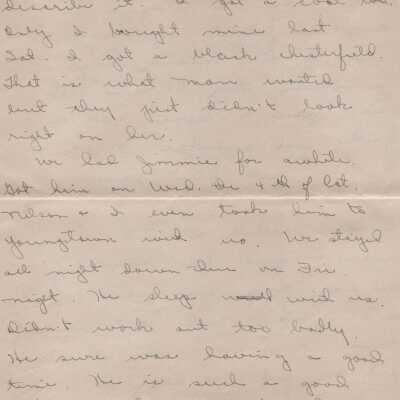 describe it. I got a coat too.
Only I bought mine last
Sat. I got a black chesterfield.
That is what Mom wanted
but they just didn't look
right on her.
We had Jimmie for awhile.
Got him on Wed. the 4th of Oct.
Nelson & I even took him to
Youngtown with us. We stayed
all night down there on Fri.
night. He sleep with us.
Didn't work out too badly.
He sure was having a good
time. He is such a good